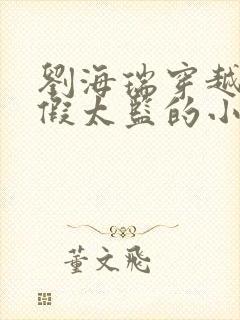 劉海瑞穿越
假太監的小
董文飛